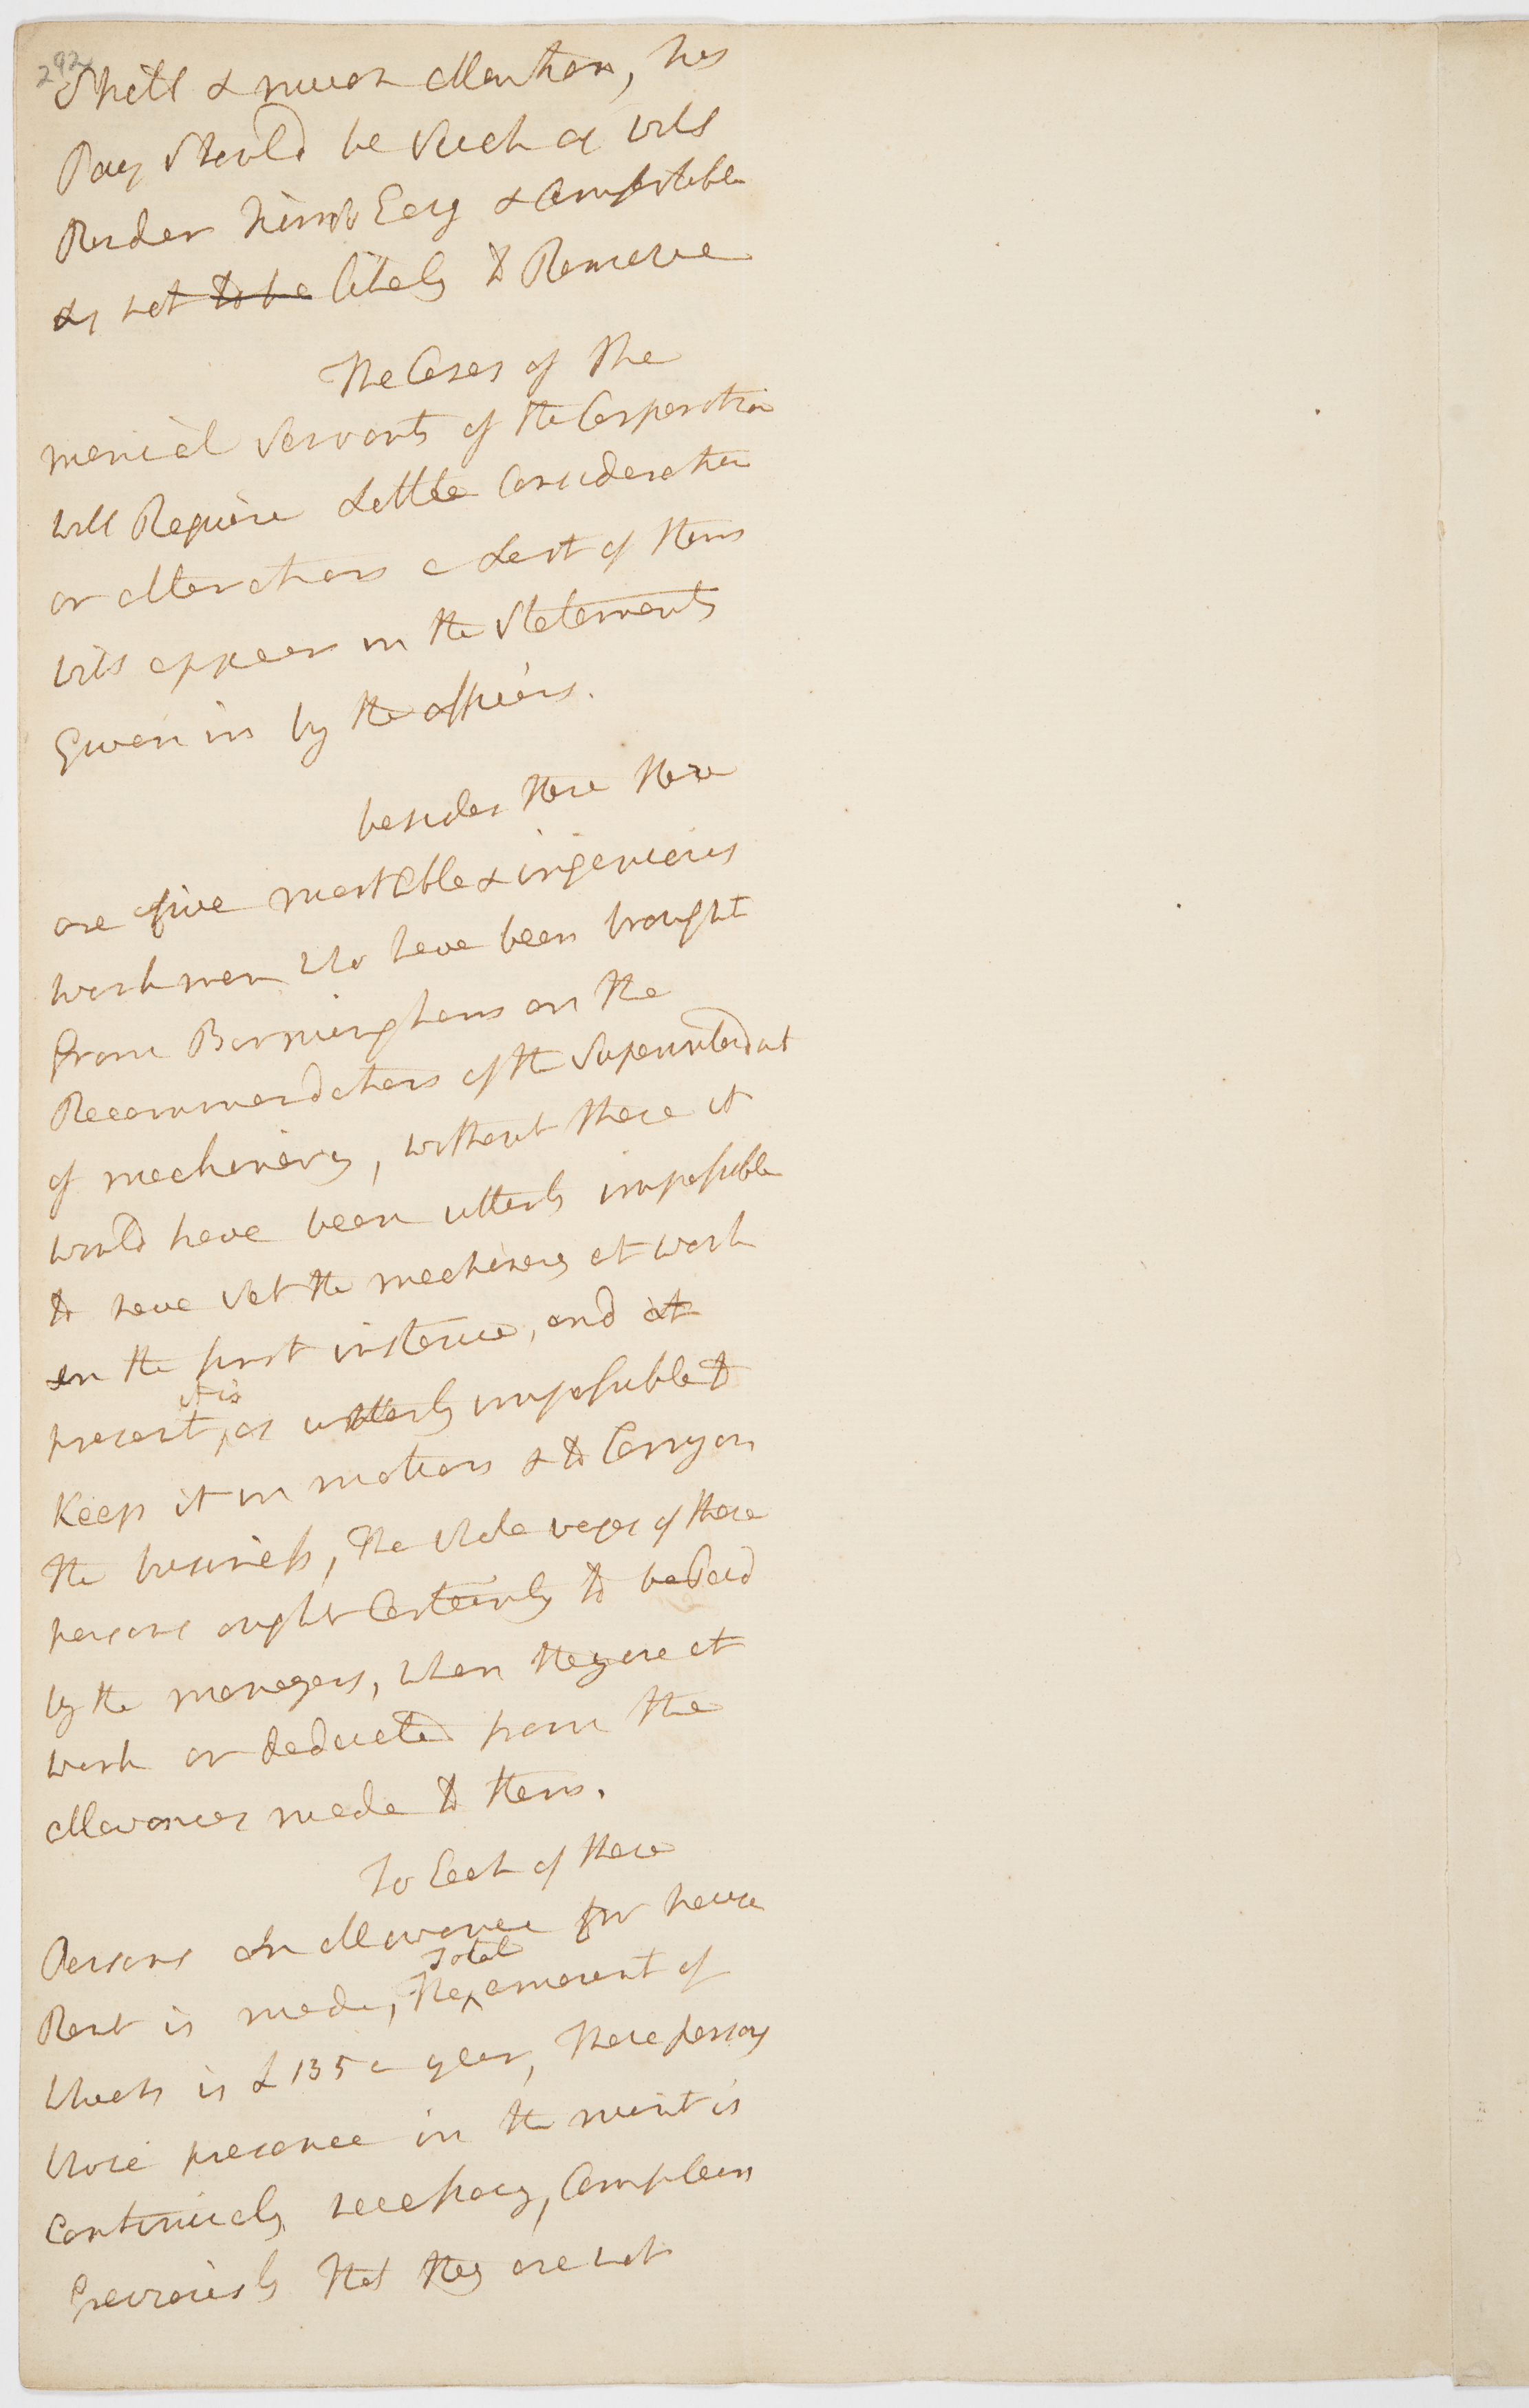 292
Skill & much attention, his
Pay Should be Such as will
Render him Easy & Comfortable
& not to be likely to Remove
The Cases of the
menial Servants of the Corporation
will Require Little Consideration
or alterations a List of them
will appear in the Statements
Given in by the officers.
besides these there
are five most able & ingenious
workmen who have been brought
from Birmingham on the
Recommendations of the Superintendant
of machinery, without these it
would have been utterly impossible
to have Set the machinery at work
in the first instance, and at
it is
present, as utterly impossible to
Keep it in motion & to Carry on
the business, The whole wages of these
persons ought Certainly to be Paid
by the moneyers, when they are at
work or deducted from the
allowances made to them.
To Each of these
Total
Persons an allowance for house
Rent is made, The amount of
which is £135 a year, These persons
whose presence in the mint is
Continualy necessary, Complain
Greivously that they are not